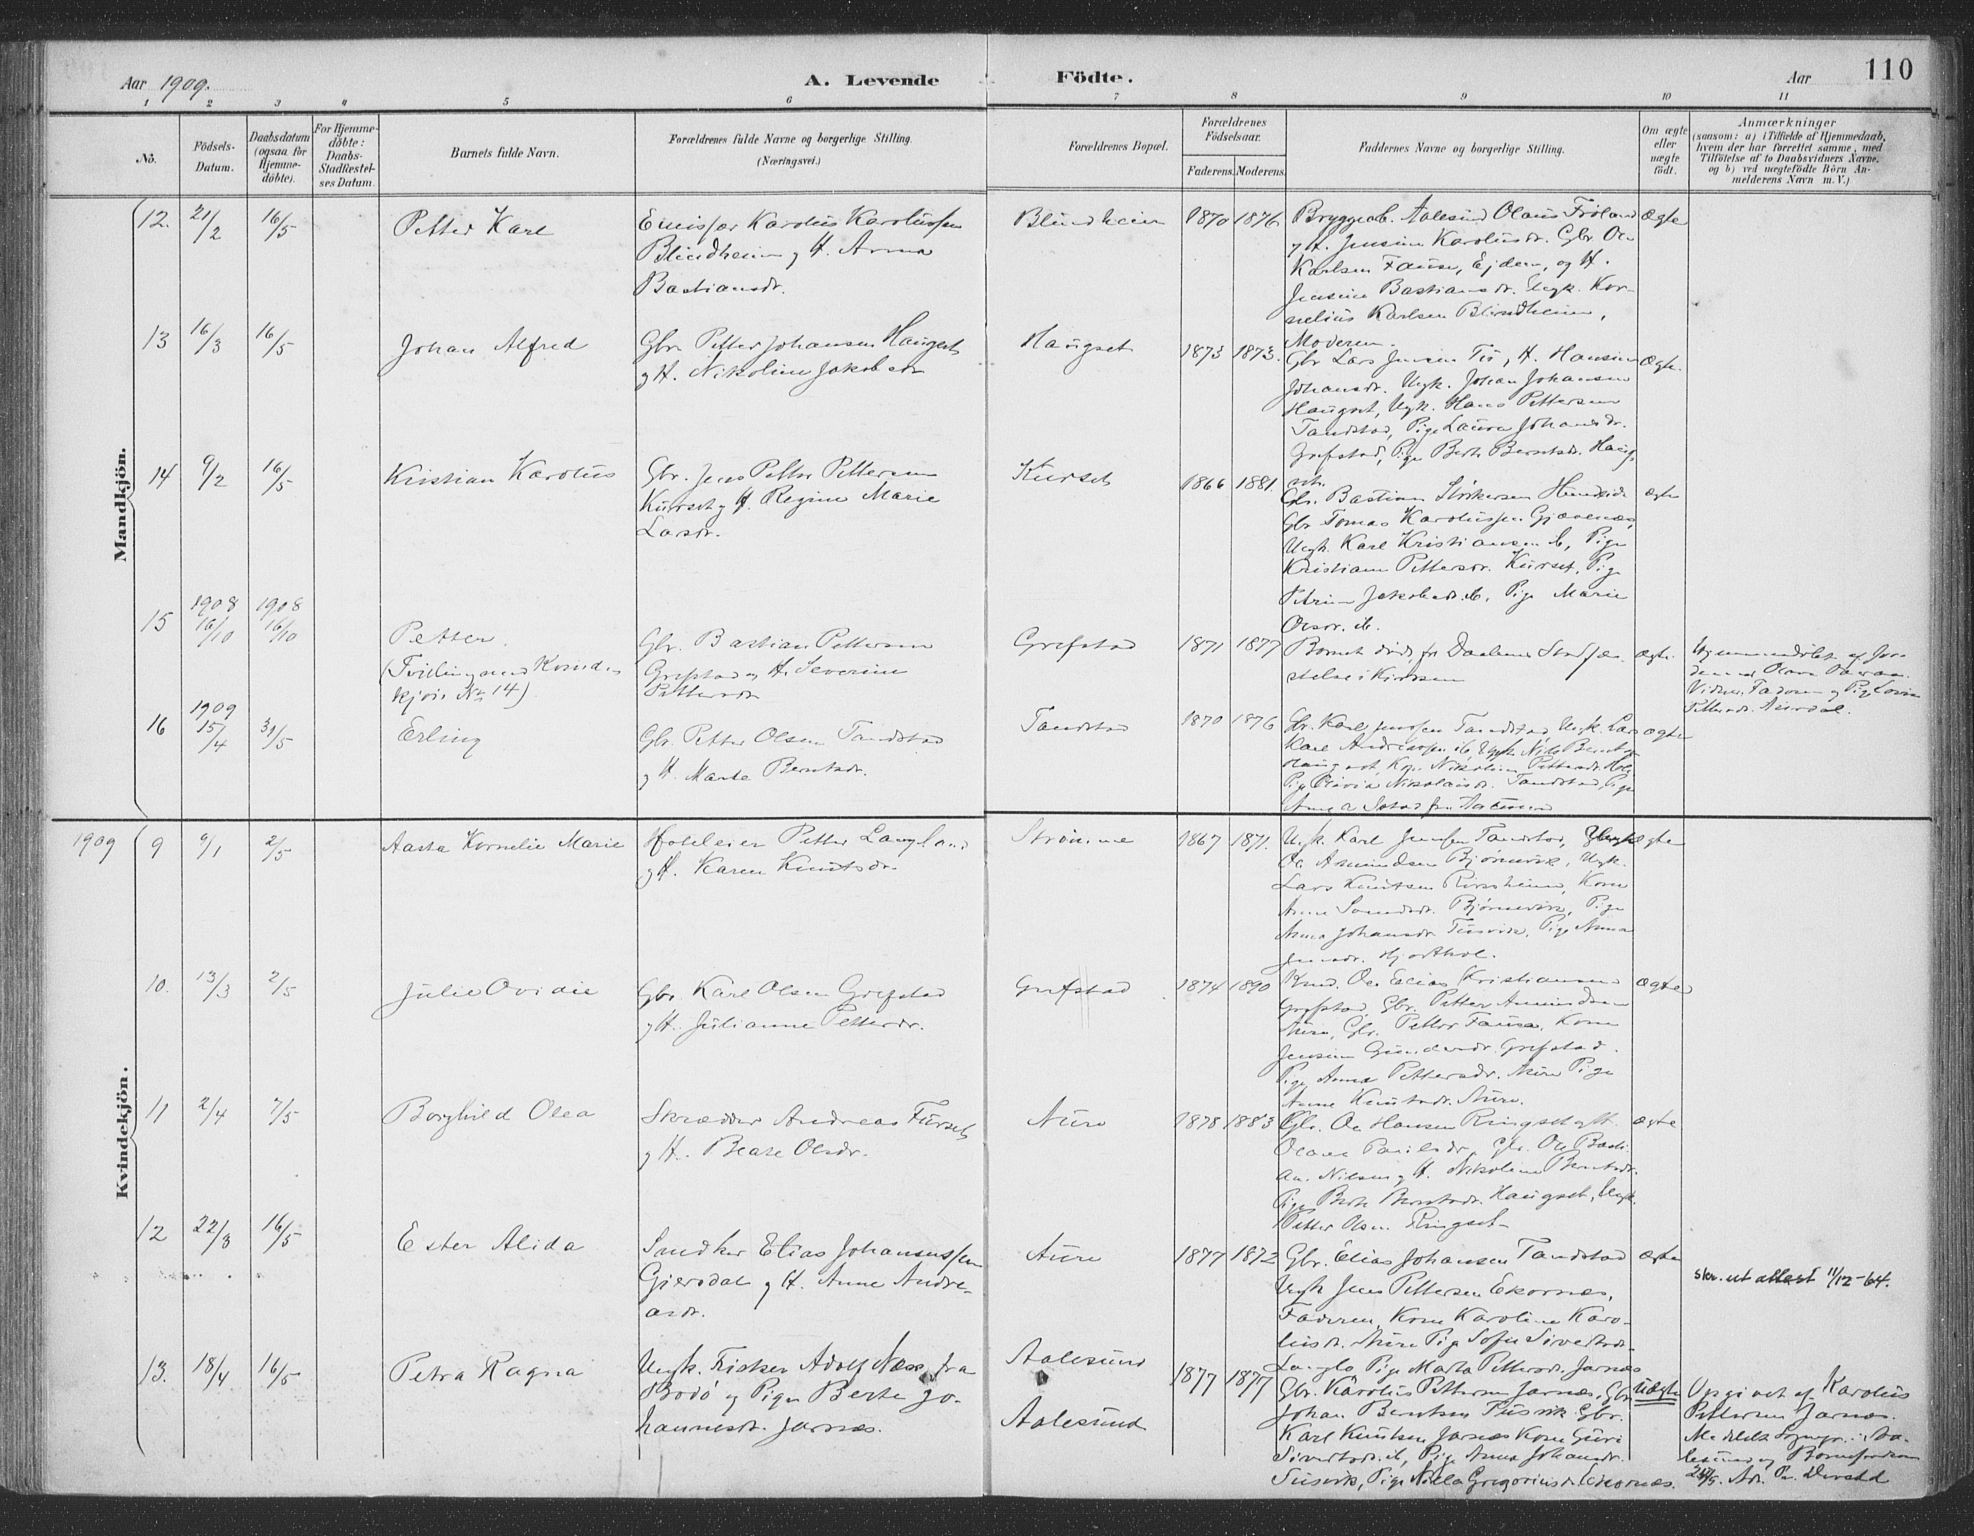 Aar 1909.
A. Levende Födte.
Aar
110
1 2 3 4 5 6 7 8 9 10 11
No.
Födsels-Datum.
Daabsdatum (ogsaa for Hjemme-döbte).
For Hjemme-döbte: Daabs-Stadfæstel-ses Datum.
Barnets fulde Navn.
Forældrenes fulde Navne og borgerlige Stilling.
(Næringsvei.)
Forældrenes Bopæl.
Forældrenes Födselsaar.
Faderens. Moderens.
Faddernes Navne og borgerlige Stilling.
Om ægte eller uægte födt.
Anmærkninger
(saasom: a) i Tilfælde af Hjemmedaab,
hvem der har forrettet samme, med
Tilföielse af to Daabsvidners Navne.
og b) ved uægtefödte Börn An-
melderens Navn m. V.)
Mandkjön.
12. 21/2 16/5 Petter Karl
Emissær Karolus Karolussen
Blindheim og H. Anna
Bastiansdr.
Blindheim 1870 1876
Bryggeab. Aalesund Olaus Frøland
og H. Jensine Karolusdr. Gbr Ole
Karlsen Fause, Ejdem, og H.
Jensine Bastiansdr. Ungk. Kor-
nelius Karlsen Blindheim,
Moderen.
ægte
13 16/3 16/5 Johan Alfred
Gbr. Petter Johansen Haugset
og H. Nikoline Jakobsdr
Haugset 1873 1873.
Gbr Lars Jensen H. Hansine
Johansdr. Ungk. Johan Johansen
Haugset, Ungk. Hans Pettersen
Tandstad, Pige Laura Johansdr.
Grefstad, Pige Berte Berntsdr. Haug-
set.
Ægte.
14 9/2 16/5 Kristian Karolus
Gbr. Jens Petter Pettersen
Kurset og H. Regine Marie
Larsdr.
Kurset 1866 1881.
Gbr. Bastian
Gbr Tomas Karolussen Gjævenes,
Ungk. Karl Kristiansen ib, Pige
Kristiane Pettersdr. Kurset, Pige
Petrine Jakobsdr. ib, Pige Marie
Olsdr. ib.
ægte
15 1908 16/10 1908 16/10 Petter.
(Tvilling med Kvinde-
kjön No 14)
Gbr. Bastian Pettersen
Grefstad og H. Severine
Pettersdr
Grefstad 1871 1877
Barnet död, før Daabens Stadfæ-
stelse i Kirken
ægte
Hjemmedöbt af Jor-
demor Olave
Vidner: Faderen og Pige Lovise
Pettersdr. Aursdal.
16 1909 15/4 31/5 Erling
Gbr. Petter Olsen Tandstad
og H. Marte Berntsdr.
Tandstad 1870 1876
Gbr. Karl Jensen Tandstad, Ungk. Lars
Karl ib, Ungk Nils Berntsen
Haugset, Kone Nikoline Pettersdr.
Pige Olavia Nikolaisdr. Tandstad, Pige
Anna fra Aalesund
ægte
Kvindekjön.
1909
9 9/1 2/5 Aasta Kornelie Marie
Hoteleier Petter Langlo
og H. Karen Knutsdr.
Strömme 1867 1871.
Ungk. Karl Jensen Tandstad, Ungk
Ole Amundsen Björnevik, Ungk.
Lars Knutsen Kone
Anne Björnevik, Pige
Anna Johansdr. Tusvik, Pige Anna
Jensdr. Hjorthol.
ægte
10. 13/3 2/5 Julie Ovidie
Gbr. Karl Olsen Grefstad
og H. Julianne Pettersdr.
Grefstad 1874 1890
Ole Elias Kristiansen
Grefstad, Gbr. Petter Amundsen
Aure, Gbr. Petter Fausa, Kone
Jensine Gundersdr. Grefstad.
Pige Anna Pettersdr. Aure Pige
Anne Knutsdr. Aure.
ægte
11 2/4 7/5 Borghild Olea
Skrædder Andreas Furset
og H. Beate Olsdr.
Aure 1878 1883
Gbr. Ole Hansen Ringset og H.
Olave Paulsdr, Gbr. Ole Basti-
an Nilsen og H. Nikoline Berntsdr.
Pige Berte Berntsdr. Haugset, Ungk.
Petter Olsen Ringset
ægte
12 22/3 16/5 Ester Alida
Sandker Elias Johansussen
Gjersdal og H. Anne Andre-
asdr.
Aure 1877 1872
Gbr. Elias Johansen Tandstad
Ungk Jens Pettersen Ekornæs,
Faderen, Kone Karoline Karo-
lusdr. Aure Pige Sofie Sivertsdr
Langlo Pige Marta Pettersdr. Jarnæs
ægte
skr. ut attest 11/12-64.
13. 18/4 16/5 Petra Ragna
Ungk. Fisker Adolf Næss, fra
Bodö og Pige Berte Jo-
hannesdr. Jarnæs.
Aalesund
Aalesund
1877 1877
Gbr. Karolus Pettersen Jarnæs, Gbr
Johan Berntsen Tusvik Gbr.
Karl Knutsen Jarnæs Kone Guri
Sivertsdr. ib, Pige Anna Johansdr.
Tusvik, Pige Nilla Gregoriusdr. Ekornæs.
Uægte
Opgivet af Karolus
Pettersen Jarnæs.
Meddelt Sognepr. i Aa-
lesund og Bornefogden